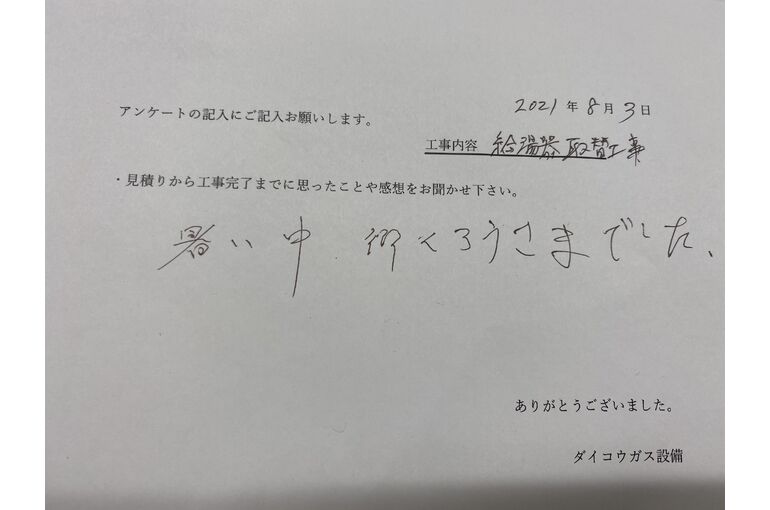 2021年8月3日
アンケートの記入にご記入お願いします。
工事内容 給湯器取替工事
・見積りから工事完了までに思ったことや感想をお聞かせ下さい。
暑い中 御くろうさまでした、
ありがとうございました。
ダイコウガス設備